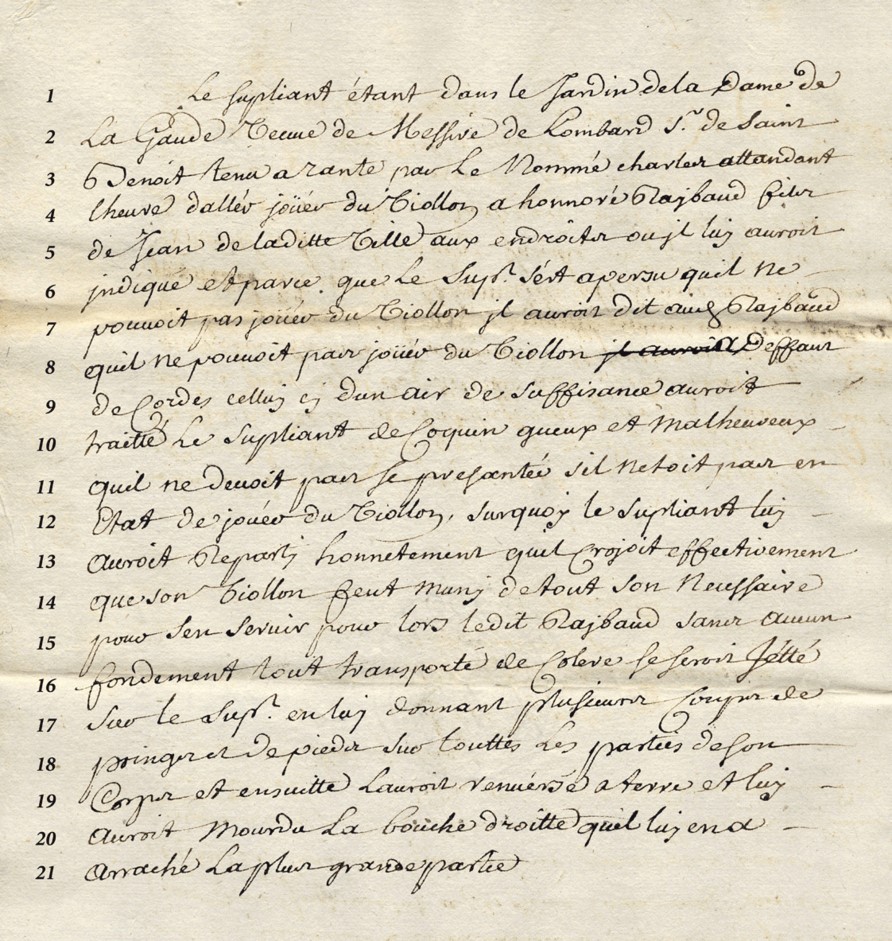 1 Le supliant étant dans le Jardin de la Dame de
2 La Gaude Veuve de Messire de Lombard Sr. de Saint
3 Benoit tenu a rante par Le Nommé charles attandant
4 lheure dallér joüér du Viollon a honnoré Rajbaud fils
5 de Jean de laditte Ville aux endroits ou jl luy auroit
6 jndiqué et parce que Le Supt. sést apersu quil ne
7 pouvoit pas joüér du Viollon jl auroit dit aud Rajbaud
8 quil ne pouvoit pas joüér du Viollon jl auroit a Deffaut
9 de Cordes celluy cy dun air de suffisance auroit
10 traitté Le supliant de Coquin gueux et Malheureux
11 quil ne devoit pas se presantér sil Netoit pas en
12 Etat de jouér du Viollon, surquoy le supliant luy
13 auroit Reparty honnétement quil Crojoit effectivement
14 que son Viollon feut muny de tout son Necessaire
15 pour sén servir pour lors ledit Rajbaud sans aucun
16 fondement tout transporté de Colere se seroit Jétté
17 sur le Supt. en luy donnant plusieurs Coups de
18 poings et de pieds sur touttes Les parties de son
19 Corps et ensuitte Lauroit renversé a terre et luy
20 auroit Mourdu La bouche droitte quil luy en a
21 arraché La plus grande partie